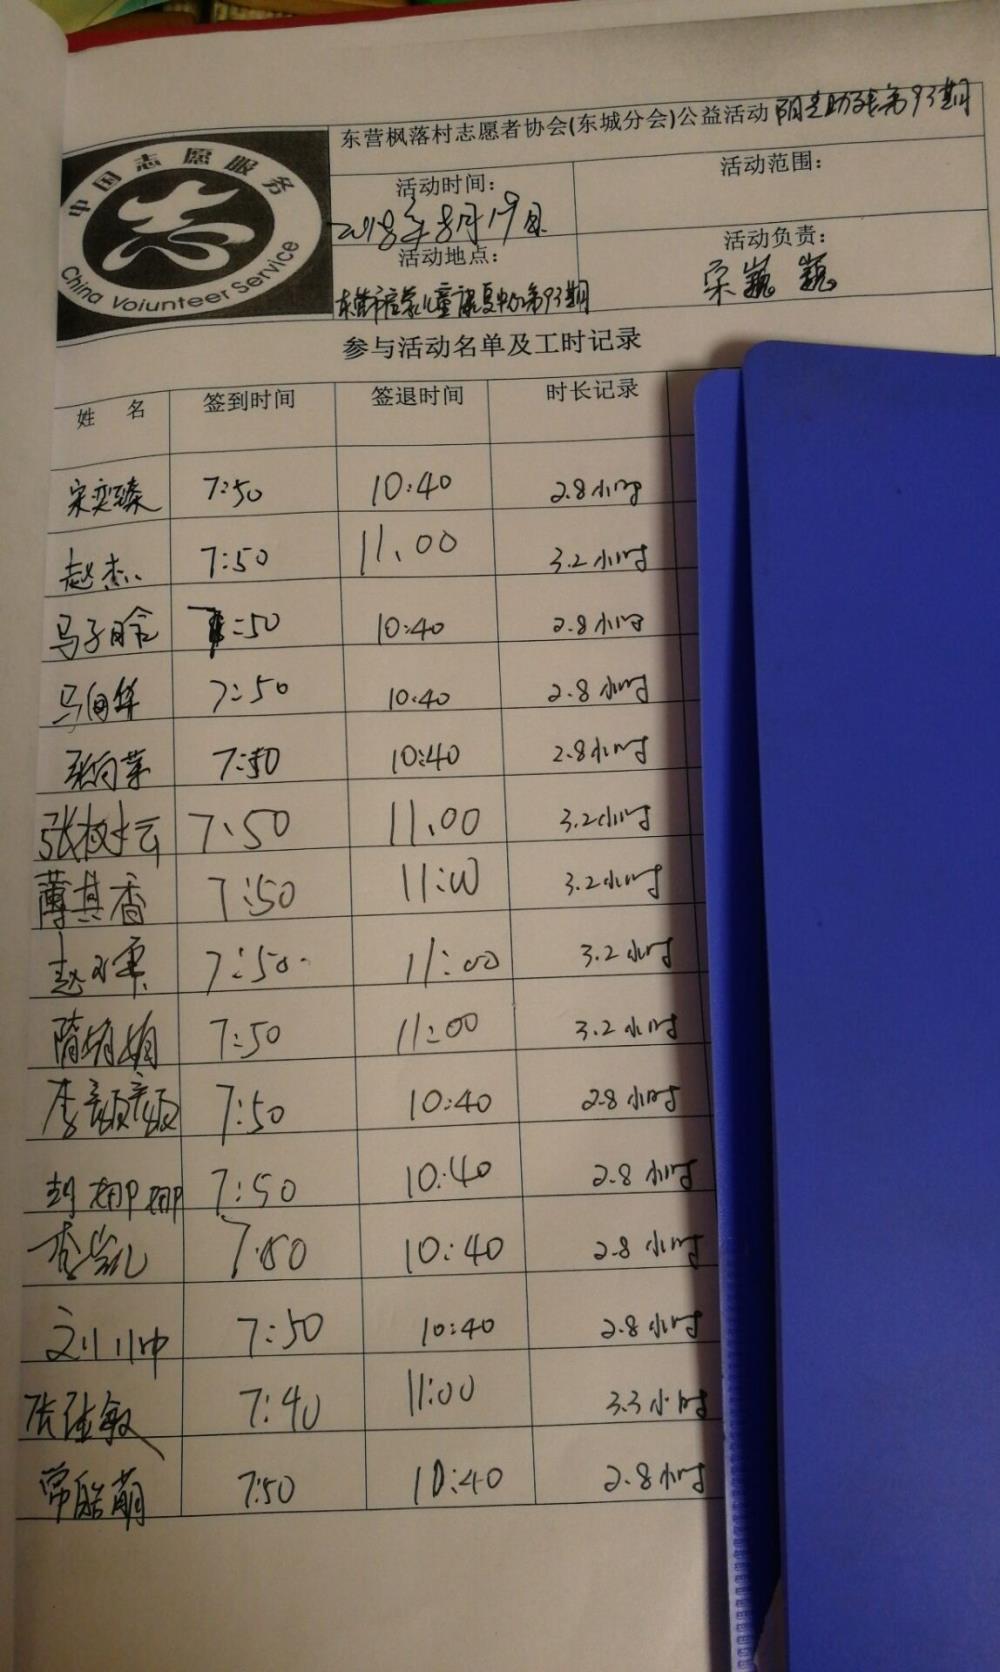 中国志愿服务
China Voiunteer Service
东营枫落村志愿者协会(东城分会)公益活动 阳光助残第93期
活动时间：
2018年8月19日
活动范围：
活动地点：
东营市启蒙儿童康复中心第93期
活动负责：
宋巍巍
参与活动名单及工时记录
姓 名 签到时间 签退时间 时长记录
宋奕臻 7:50 10:40 2.8小时
赵杰 7:50 11.00 3.2小时
马子晗 7:50 10:40 2.8小时
马向华 7:50 10:40 2.8小时
张向荣 7:50 10:40 2.8小时
张树云 7:50 11.00 3.2小时
薄其香 7:50 11:00 3.2小时
赵 7:50 11:00 3.2小时
隋娟娟 7:50 11:00 3.2小时
李颜颜 7:50 10:40 2.8小时
封娜娜 7:50 10:40 2.8小时
李凯 7:50 10:40 2.8小时
刘川冲 7:50 10:40 2.8小时
张佳敏 7:40 11:00 3.3小时
常萌 7:50 10:40 2.8小时